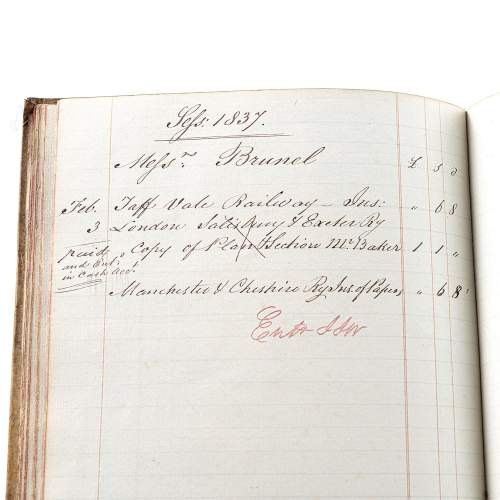 Sess: 1837.
Messrs Brunel
£ s d
Feb. Taff Vale Railway - Ins: " 6 8
3 London Salisbury & Exeter Ry
paid " Copy of Plan & Section Mr. Baker 1 1 "
and Ent:
in Cash Acct.
Manchester & Cheshire Ry Ins. of Papers " 6 8